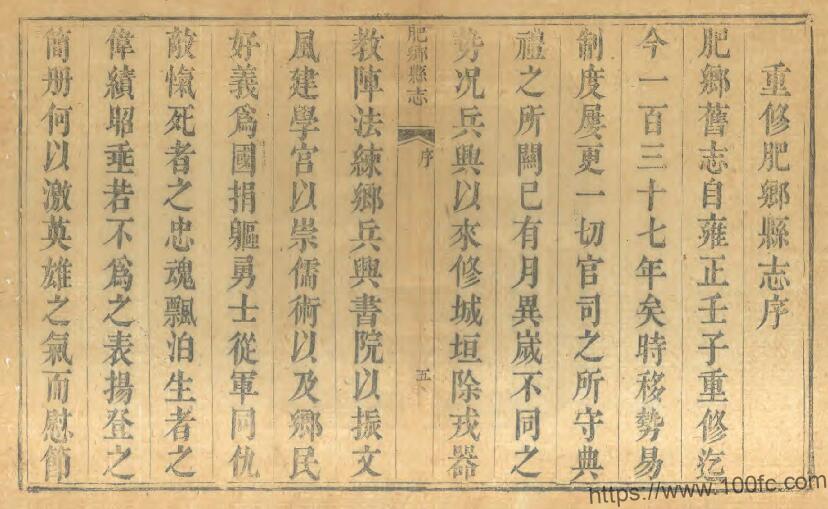 重修肥鄉縣志序
肥鄉舊志自雍正壬子重修迄
今一百三十七年矣時移勢易
制度屢更一切官司之所守典
禮之所關已有月異歲不同之
勢况兵興以來修城垣除戎器
肥鄉縣志
序
五
教陣法練鄉兵興書院以振文
風建學宫以崇儒術以及鄉民
好義爲國捐軀勇士從軍同仇
敵愾死者之忠魂飄泊生者之
偉績昭垂若不爲之表揚登之
簡册何以激英雄之氣而慰節
https://www.100fc.com